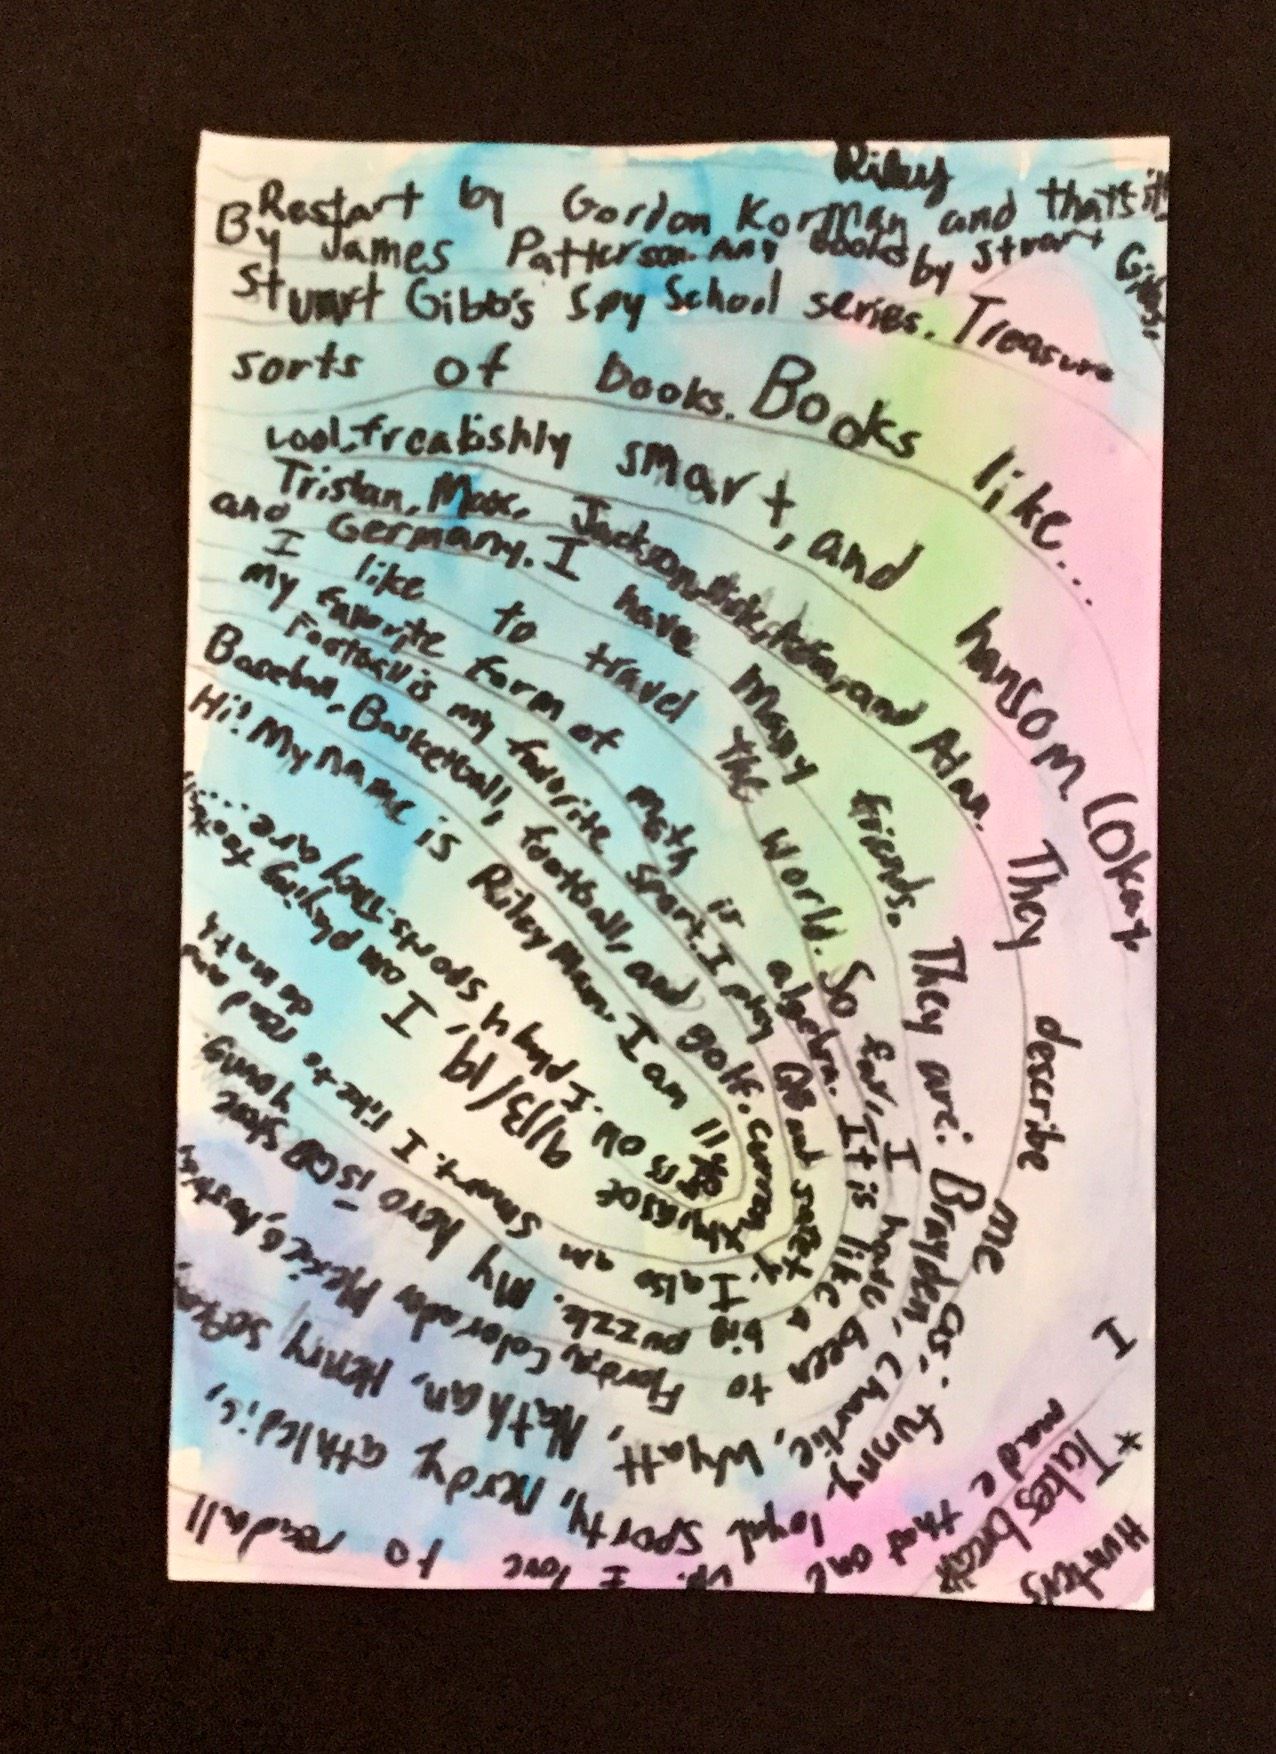 Riley
Hi! My name is Riley Man. I am 11
years old. I play 4 sports. They are....
Baseball, Basketball, football, and golf. Currently, I am playing
9/13/19
is my favorite sport. I play QB and safety. I also am smart. I like to read and do math
my favorite form of math is algebra. It is like a big puzzle. My hero is
I like to travel the world. So far, I have been to Florida, Colorado, Mexico,
and Germany. I have many friends. They are: Brayden, Charlie, Wyatt, Nathan, Henry
Tristan, Max, Jackson, and Adan. They describe me as: funny, loyal, sporty, nerdy, athledic,
cool, freakishly smart, and hansom (Okay,
I made that one up. I love to read all
sorts of books. Books like...
*Takes breath*
Stuart Gibb's Spy School series. Treasure
Hunters
By James Patterson. Any books by Stuart Gibbs.
Restart by Gordon Korman and that's it!